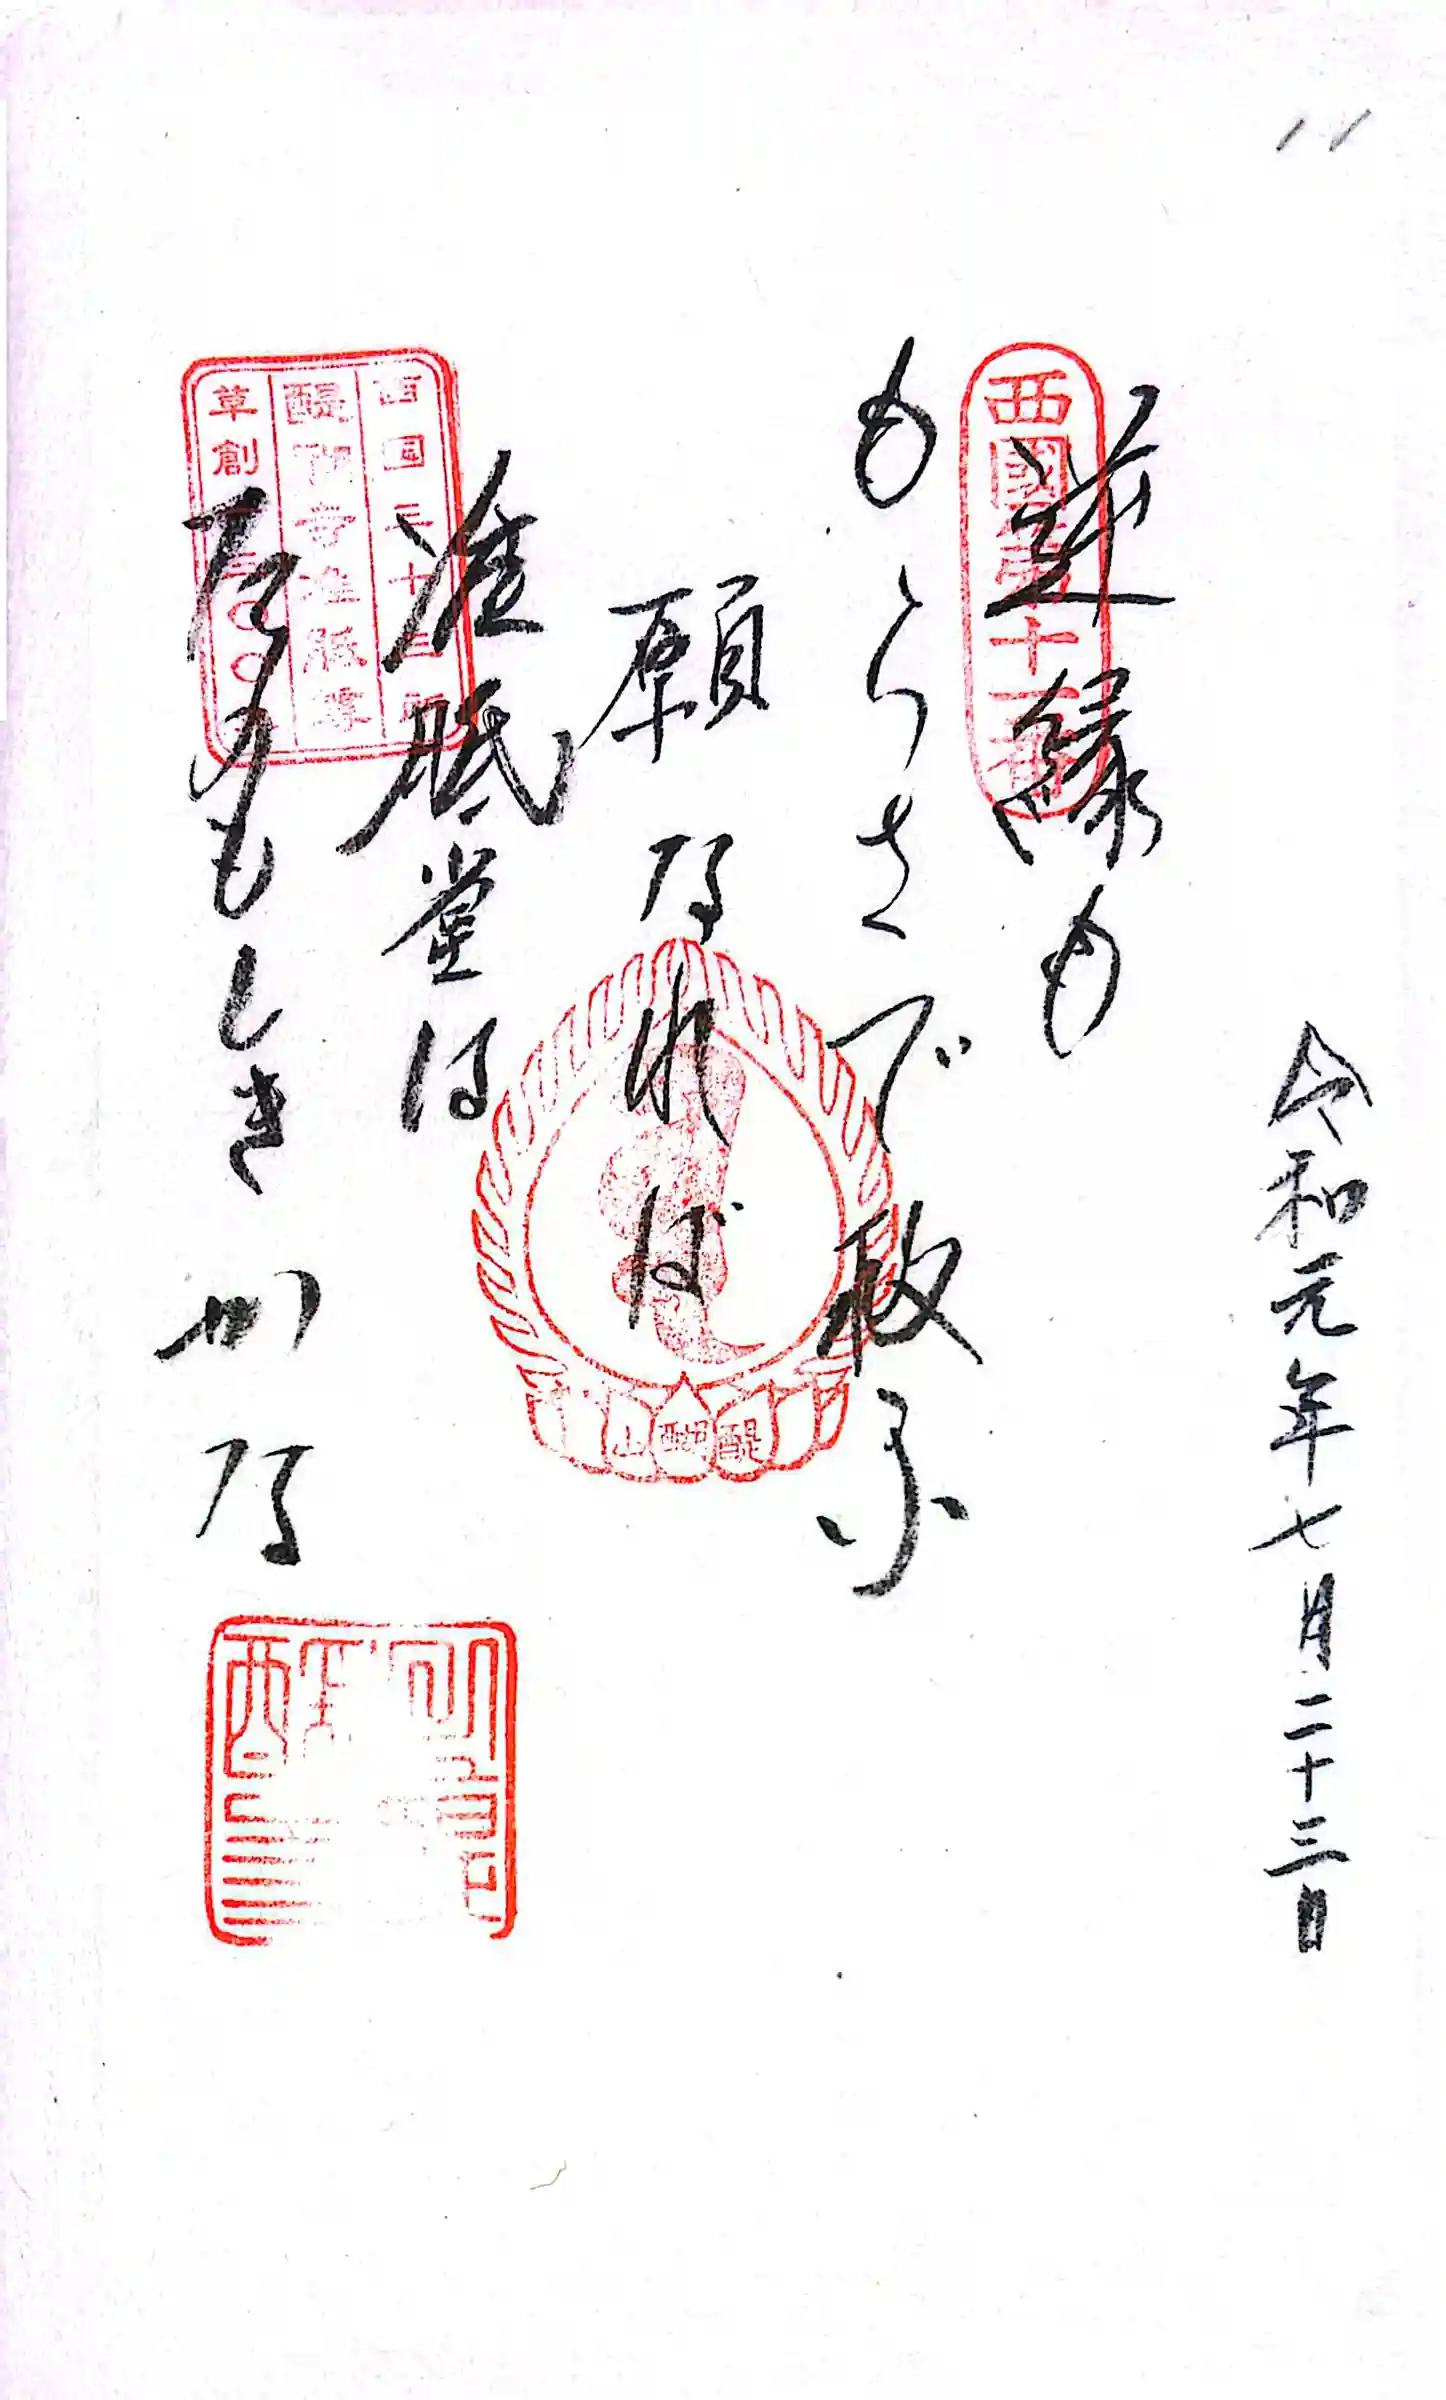 11
令和元年七月二十三日
西國第十一番
逆縁も
もらさで救ふ
願なれば
准胝堂は
たのもしきかな
西国三十三所
醍醐寺准胝尊
草創一三〇〇年
醍醐山